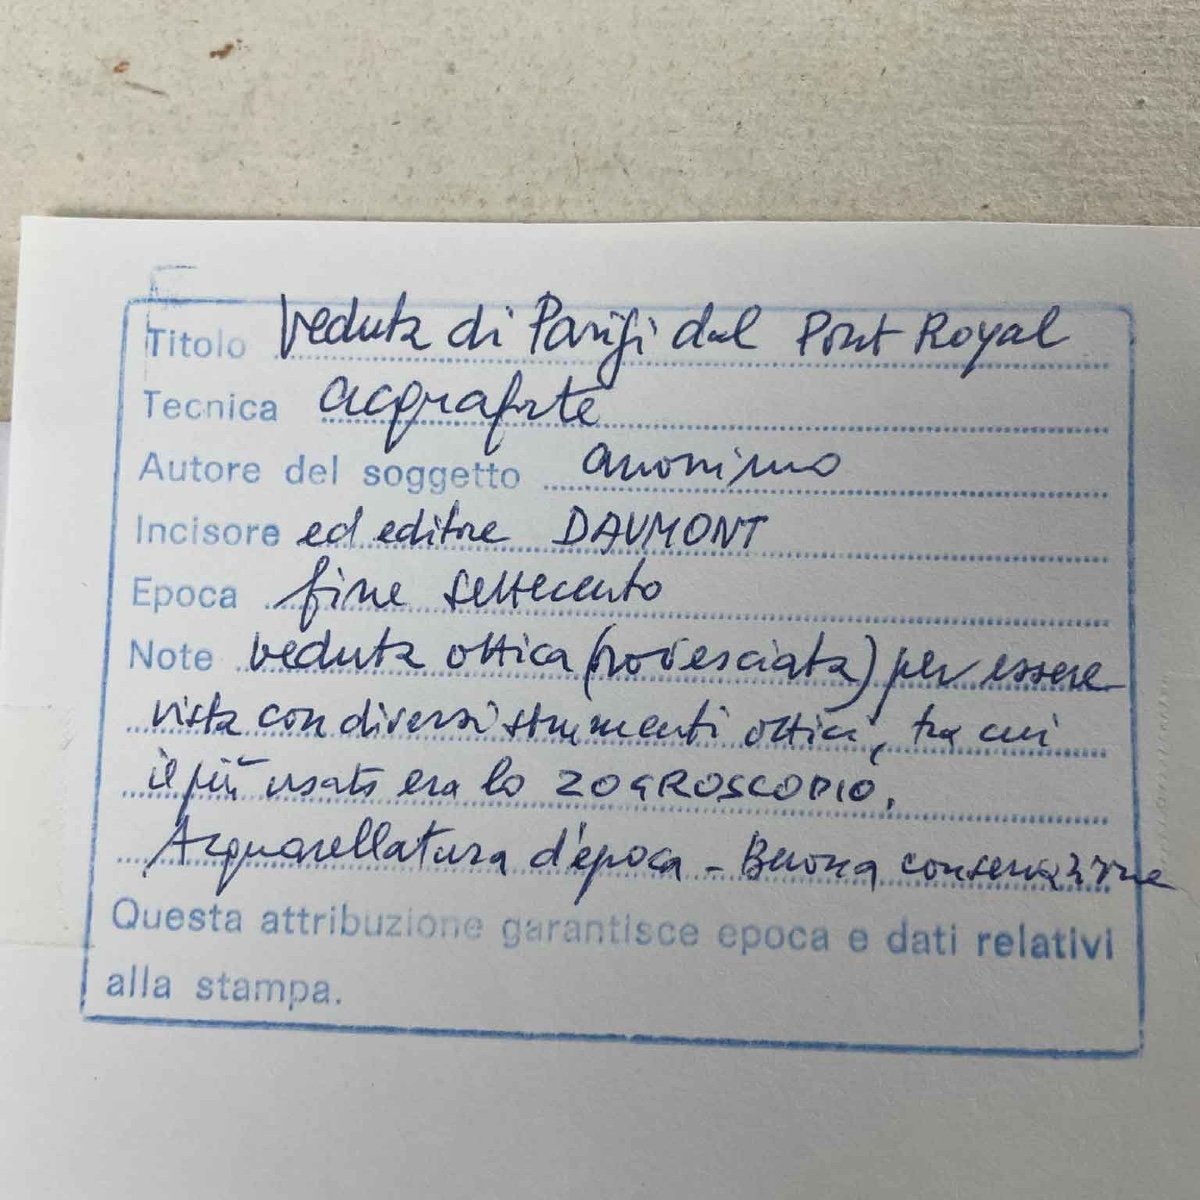 Titolo Veduta di Parigi dal Pont Royal
Tecnica acquaforte
Autore del soggetto anonimo
Incisore ed editore DAUMONT
Epoca fine settecento
Note veduta ottica (rovesciata) per essere
vista con diversi strumenti ottici, tra cui
il più usato era lo ZOGROSCOPIO.
Acquarellatura d'epoca - Buona conservazione
Questa attribuzione garantisce epoca e dati relativi
alla stampa.